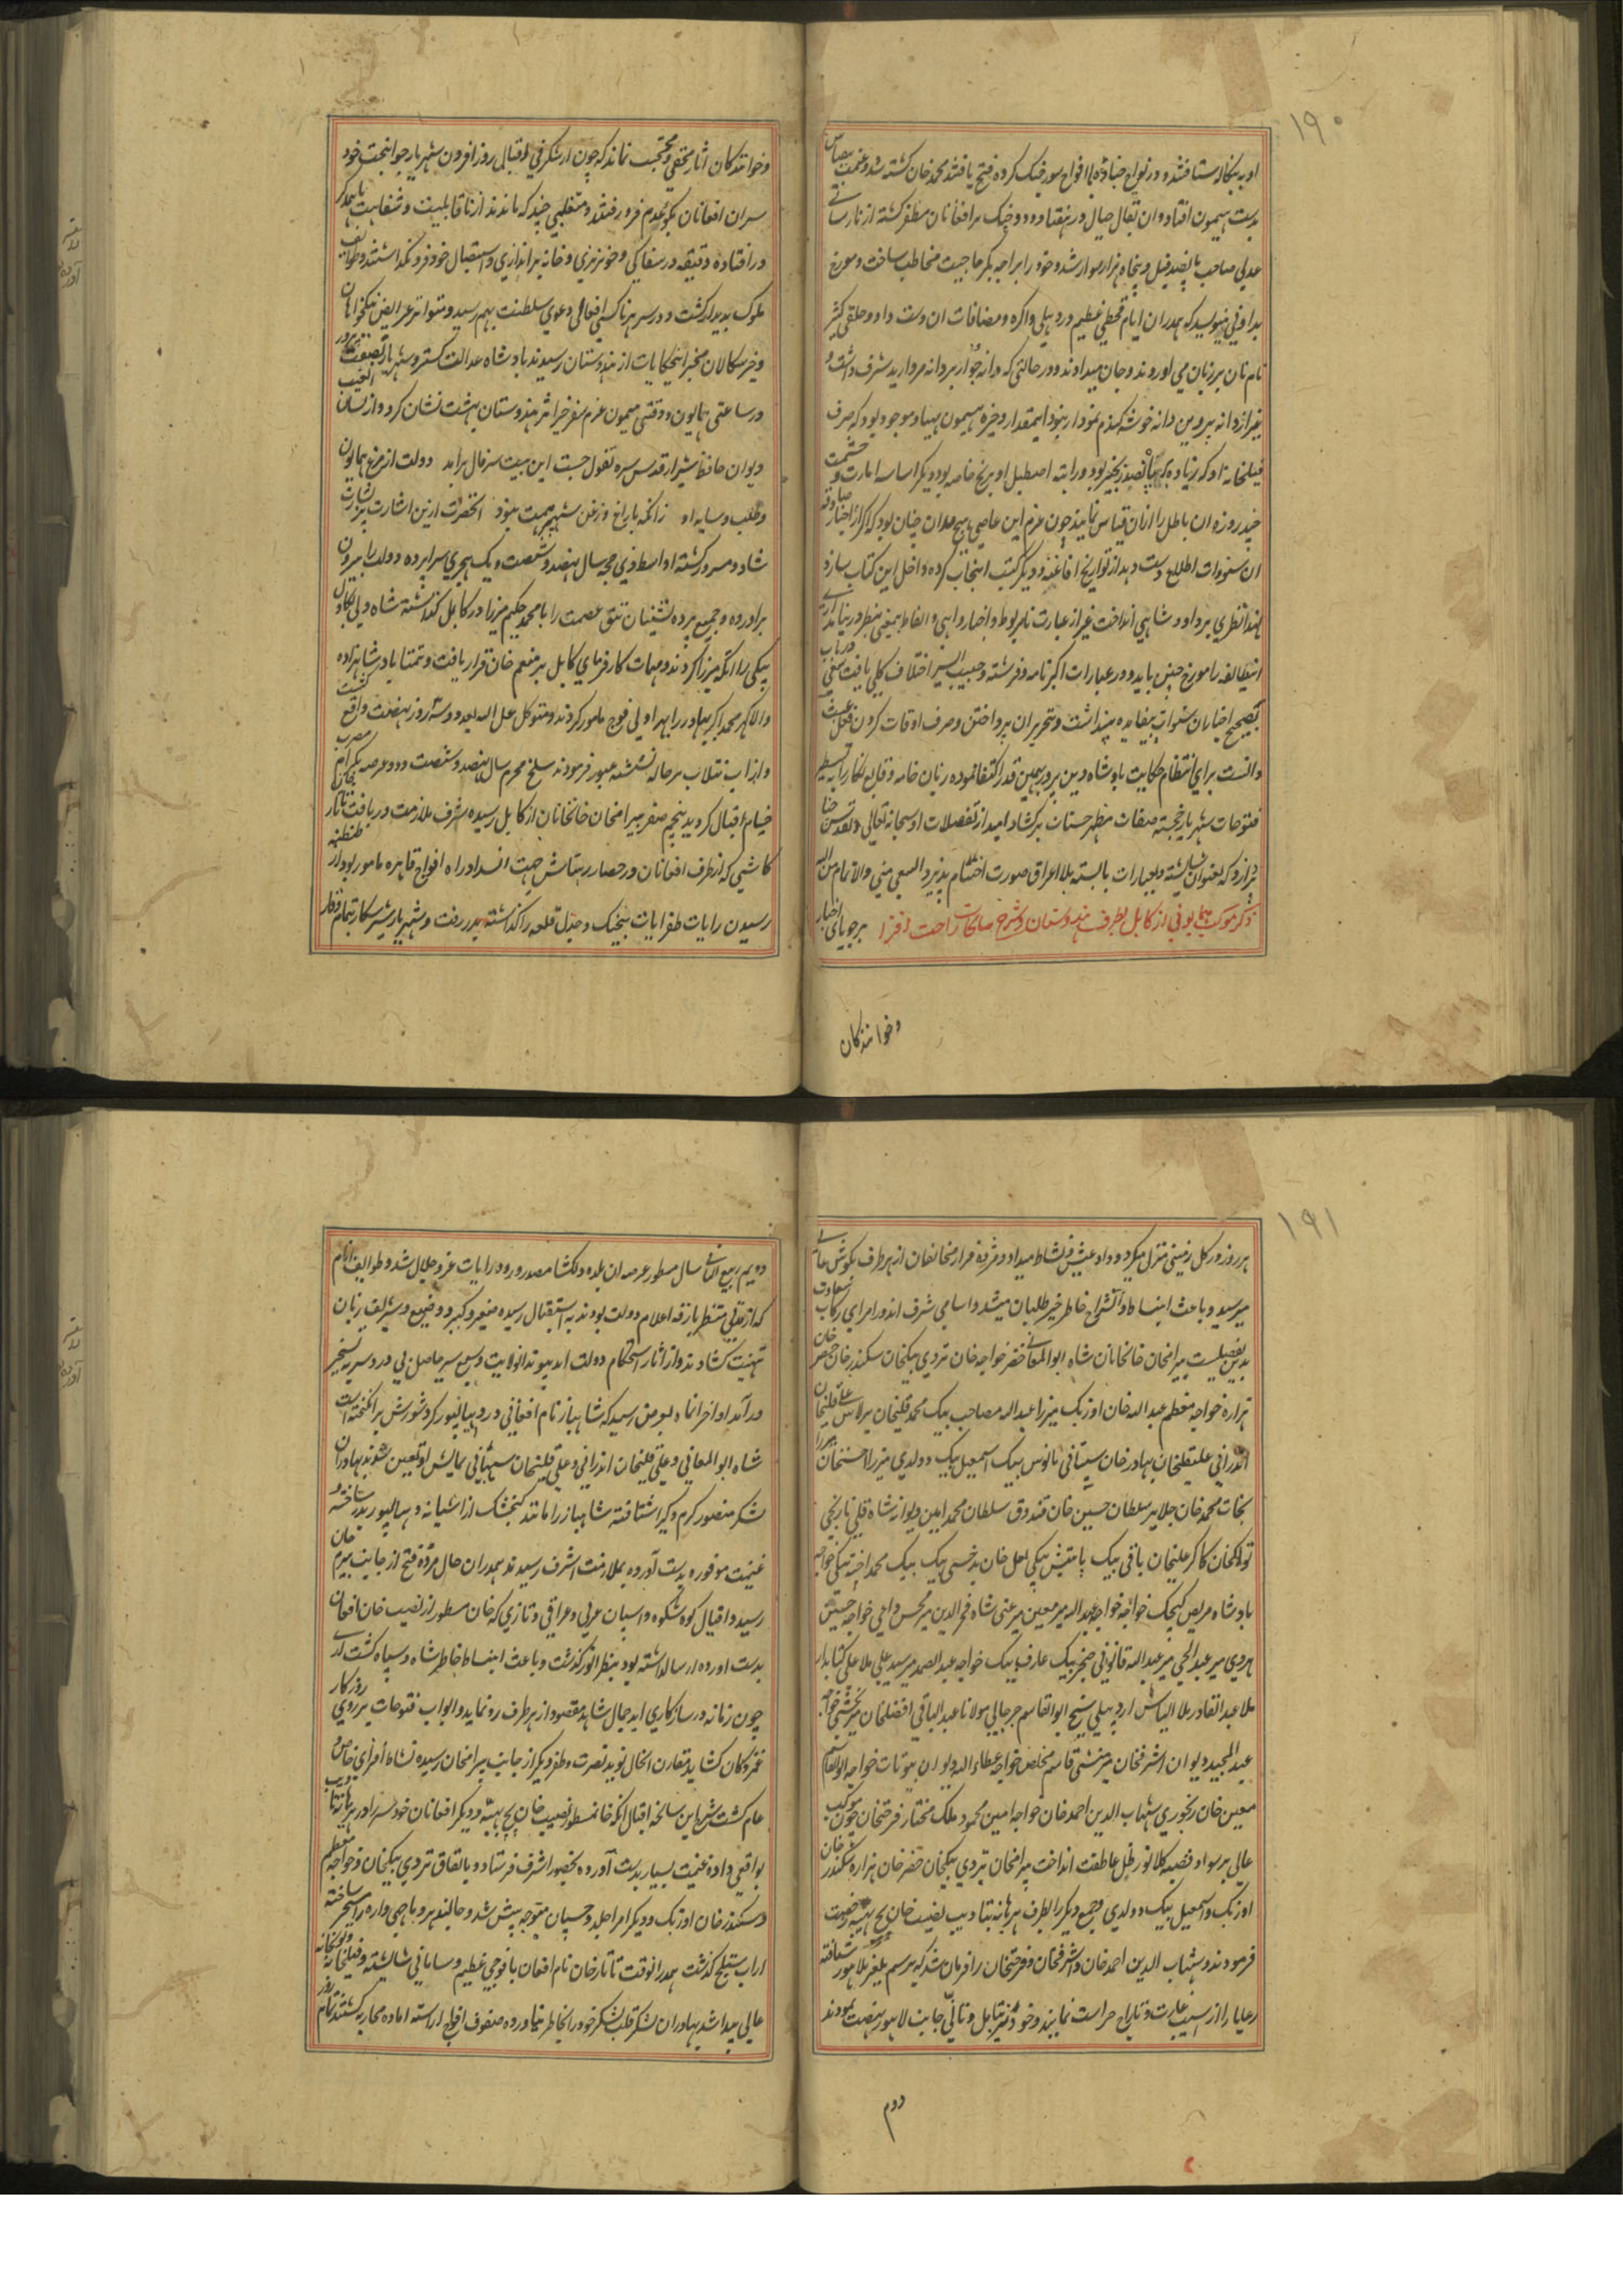 ۱۹۰
او به بنکاله شتافتند و در نواح جناده با افواج سور جنک کرده فتح یافتند محمد خان کشته شد و غنیمت بیقیاس
بدست هیمون افتاد و ان بقال در هفتاد و دو جنک بر افغانان مظفر کشته از نارسائی
عدلی صاحب پانصد فیل و پنجاه هزار سوار شد و خود را براجه بکرماجیت مخاطب ساخت و مورخ
بداونی مینویسد که همدران ایام قحطی عظیم در دهلی و اکره و مضافات ان دست داد و خلقی کثیر
نام نان بر زبان می اوردند و جان میدادند و در حالتی که دانه جوار بر دانه مروارید شرف داشت و
غیر از دانه پروین دانه خوشه کندم نمودار نبود اینقدار ذخیره هیمون مهیا و موجود بود که صرف
فیلخانه او که زیاده بر پانصد زنجیر بود و راتبه اصطبل او برنج خاصه بود و دیکر اساسه امارت و حشمت
چند روزه ان باطل را ازان قیاس نمایند چون عزم این عاصی هیچمدان چنان بود که اکر از اخبار صادقه
ان سنوات اطلاع دست دهد از تواریخ افاغنه و دیکر کتب انتخاب کرده داخل این کتاب سازد
لهذا نظری بر داود شاهی انداخت غیر از عبارت نامربوط و اخبار واهی و الفاظ بیمعنی بنظر در نیامد ازین
انتظالفه را مورخ چنین باید و در عبارات اکبرنامه و فرشته و حبیب السیر اختلاف کلی یافت سعی درباب
تصحیح اخبار ان سنوات بیفایده پنداشت و بتحریر ان پرداختن و صرف اوقات کردن فعل عبث
دانست برای انتظام حکایت پادشاه دین پرور بهمین قدر اکتفا نموده زبان خامه وقایع نکار را به تسطیر
فتوحات شهریار خجسته صفات مظهر حسنات برکشاد امید از تفضلات او سبحانه تعالی و تقدس چنا
نچه دارد که بعنوان شایسته و بعبارات بایسته بلا اغراق صورت اختتام پذیرد السعی منی والاتمام من الله
ذکر موکب همایونی از کابل بطرف هندوستان و شرح سانحات راحت افزا بر جویای اخبار
و خوانندکان
و خوانندکان اثار مخفی و محتجب نماند که چون از شکرفی اقبالی روز افزون شهریار جوانبخت خود
سران افغانان بکوی عدم فرو رفتند و متغلبی چند که ماندند از ناقابلیت و شقاوت با همدکر
در افتاده دقیقه در سفاکی و خونریزی و خانه براندازی و استیصال خود فرو نکذاشتند و طوایف
ملوک پدیدار کشت و در سر هر ناکسی افغانی دعوی سلطنت بهم رسید و متواتر عرایض نیکخواهان
و خیرسکالان مخبر اینحکایات از هندوستان رسیدند پادشاه عدالت کستر و شهریار نصفت پرور
در ساعتی همایون و وقتی میمون عزم سفر خیر اثر هندوستان بهشت نشان کرد و از لسان الغیب
دیوان حافظ شیراز قدس سره تفول جست این بیت سرفال برامد دولت از مرغ همایون
و طلب و سایه او زانکه با زاغ و زغن شهپر همت نبود انحضرت ازین اشارت پر بشارت
شاد و مسرور کشته اواسط ذی حجه سال نهصد و شصت و یک هجری سراپرده دولت را بیرون
براورده و جمیع پرده نشینان تتق عصمت را با محمد حکیم میرزا در کابل کذاشته شاه ولی بکاول
بیکی را اتکه میرزا کردند و مهمات کارفرمای کابل بر منعم خان قرار یافت و تمنتا پادشاهزاده
والاکهر محمد اکبر بهادر را بهراولی فوج مامور کردند و متوکل علی الله بعد دو سه روز نهضت واقع کشت
و از اب نیلاب بر جاله نشسته عبور فرمودند سلخ محرم سال نهصد و شصت و دو عرصه بکرام مضرب
خیام اقبال کردید پنجم صفر بیرامخان خانخانان از کابل رسیده شرف ملازمت دریافت تاتار
کاشی که از طرف افغانان در حصار رهتاس جهت انسداد راه افواج قاهره مامور بود از طنطنه
رسیدن رایات ظفر ایات بیجنک و جدل قلعه را کذاشته بدر رفت و شهریار شیر شکار بتمام وقار
۱۹۱
هر روز در کل زمینی منزل میکرد و داد عیش و نشاط میداد و مژده مرار مخالفان از هر طرف بکوش عالی
میرسید و باعث انبساط و انشراح خاطر خیرطلبان میشد و اسامی شرف اندوز امرای رکاب سعادت
بدین تفصیلست بیرامخان خانخانان شاه ابوالمعالی خضر خواجه خان تردی بیکخان سکندر خان خضر خان
هزاره خواجه معظم عبدالله خان اوزبک میرزا عبدالله مصاحب بیک محمد قلیخان برلاس علی قلیخان
اندرابی علیقلیخان بهادر خان سیستانی بالتوس بیک اسمعیل بیک دولدی میرزا حسنخان میرزا
نجات محمد خان جلایر سلطان حسین خان قندوق سلطان محمد امین دیوانه شاه قلی نارنجی
تولکخان کاکر علیخان باقی بیک یاتیش بیکی لعل خان بدخشی بیک بیک محمد اخته بیکی خواجه
پادشاه مریض کیچک خواجه خواجه عبدالله میر معین میر غنی شاه فخرالدین میر محسن داعی خواجه حسین
هروی میر عبدالحی میر عبدالله قانونی خنجر بیک عارف بیک خواجه عبدالصمد میر سید علی ملا علی کتابدار
ملا عبدالقادر ملا الیاس اردبیلی شیخ ابوالقاسم جرجانی مولانا عبدالباقی افضلخان میر بخشی خواجه
عبدالمجید دیوان اشرفخان میر منشی قاسم مخلص خواجه عطاءالله دیوان بیوتات خواجه ابوالقاسم
معین خان رنجوری شهاب الدین احمد خان خواجه امین محمود ملک مختار فرحتخان چون موکب
عالی بر سواد قصبه کلانور ظل عاطفت انداخت بیرامخان تردی بیکخان خضر خان هزاره سکندر خان
اوزبک و اسمعیل بیک دولدی و جمع دیکر را بطرف هریانه بتادیب نصیب خان پنج بهیه رخصت
فرمودند و شهاب الدین احمد خان و اشرفخان و فرحتخان را فرمان شد که برسم یلغر بلاهور شتافته
رعایا را از اسیب غارت و تاراج حراست نمایند و خود نیز بتامل و تانی جانب لاهور نهضت نمودند
دوم
دویم ربیع الثانی سال مسطور عرصه ان بلده دلکشا مصدر ورود رایات عز و جلال شد و طوایف انام
که از مدتی منتظر بارقه اعلام دولت بودند به استقبال رسیده صغیر و کبیر و وضیع و شریف زبان
تهنیت کشادند و از اثار استحکام دولت ابد پیوند انولایت وسیع سیر حاصل بی دردسر به تسخیر
در آمد اواخر انماه بعرض رسید که شاهباز نام افغانی در دیپالپور کرد شورش برانکیخته است
شاه ابوالمعالی و علی قلیخان اندرابی و علی قلیخان سیستانی بمالش او تعیین شوند بهادران
لشکر منصور کرم و کیرا شتافته شاهباز را مانند کنجشک از اشیانه دیپالپور بدر ساخته و
غنیمت موفوره بدست آورده بملازمت اشرف رسیدند همدران حال مژده فتح از جانب بیرم خان
رسید و اقبال کوه شکوه و اسپان عربی و عراقی و تازی که خان مسطور از نصیب خان افغان
بدست اورده ارسالداشته بود بنظر انور کذشت و باعث انبساط خاطر شاه و سپاه کشت اری
چون زمانه در سازکاری اید جمال شاهد مقصود از هر طرف رو نماید و ابواب فتوحات بر روی روزکار
غمزدکان کشاید مقارن انحال نوید نصرت و ظفر دیکر از جانب بیرامخان رسیده نشاط افزای خاص و
عام کشت شرح این سانحه اقبال انکه خانمسطور نصیب خان پنج بهیه و دیکر افغانان خودسر را در هریانه تادیب
بواقعی داده غنیمت بسیار بدست آورده بحضور اشرف فرستاد و باتفاق تردی بیکخان و خواجه معظم
و سکندر خان اوزبک و دیکر امرا جلد و چسپان متوجه پیش شد و جالندهر و ماچی واره را مسخر ساخته
از اب ستلج کذشت همدرانوقت تاتار خان نام افغان با فوجی عظیم و سامانی شایسته و فیلخانه و توپخانه
عالی پیدا شد بهادران لشکر قلب شکر خود را بخاطر نیاورده صفوف افواج اراسته اماده محاربه کشتند تمام روز